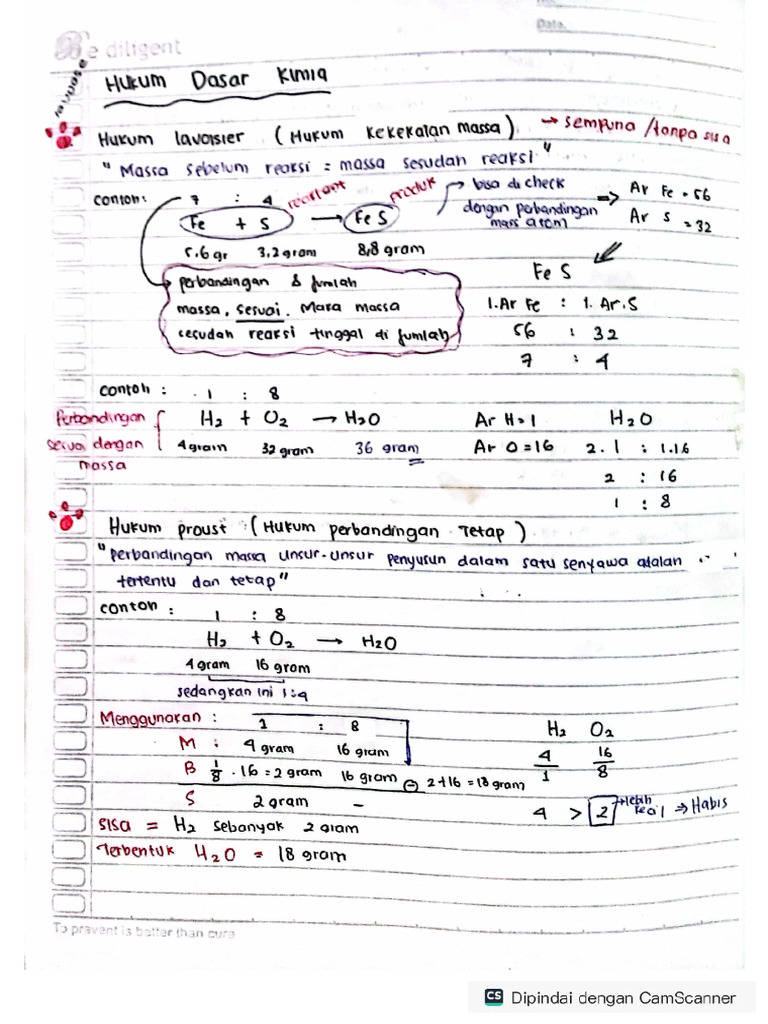 Date.
Be diligent
Hukum Dasar Kimia
Hukum lavoisier (Hukum Kekekalan massa) → sempuna / tanpa sisa
"Massa sebelum reaksi = massa sesudah reaksi"
contoh: 7 : 4 reaktant produk → bisa di check ⇒ Ar Fe = 56
Fe + S → FeS dengan perbandingan mass atom Ar S = 32
5,6 gr 3,2 gram 8,8 gram
Fe S
perbandingan & Jumlah
massa, sesuai. Maka massa
sesudah reaksi tinggal di Jumlah
1. Ar Fe : 1. Ar. S
56 : 32
7 : 4
contoh : 1 : 8
Perbandingan H2 + O2 → H2O Ar H = 1 H2O
sesuai dengan 4 gram 32 gram 36 gram Ar O = 16 2. 1 : 1.16
massa 2 : 16
1 : 8
Hukum proust (Hukum perbandingan Tetap)
"perbandingan massa unsur-unsur penyusun dalam satu senyawa adalah
tertentu dan tetap"
contoh : 1 : 8
H2 + O2 → H2O
4 gram 16 gram
sedangkan ini 1:4
Menggunakan : 1 : 8 H2 O2
M : 4 gram 16 gram 4/1 16/8
B 1/8 . 16 = 2 gram 16 gram ⊖ 2+16 = 18 gram
S 2 gram – 4 > 2 → lebih kecil ⇒ Habis
sisa = H2 sebanyak 2 gram
Terbentuk H2O = 18 gram
To pravent is batter than cure
CS Dipindai dengan CamScanner